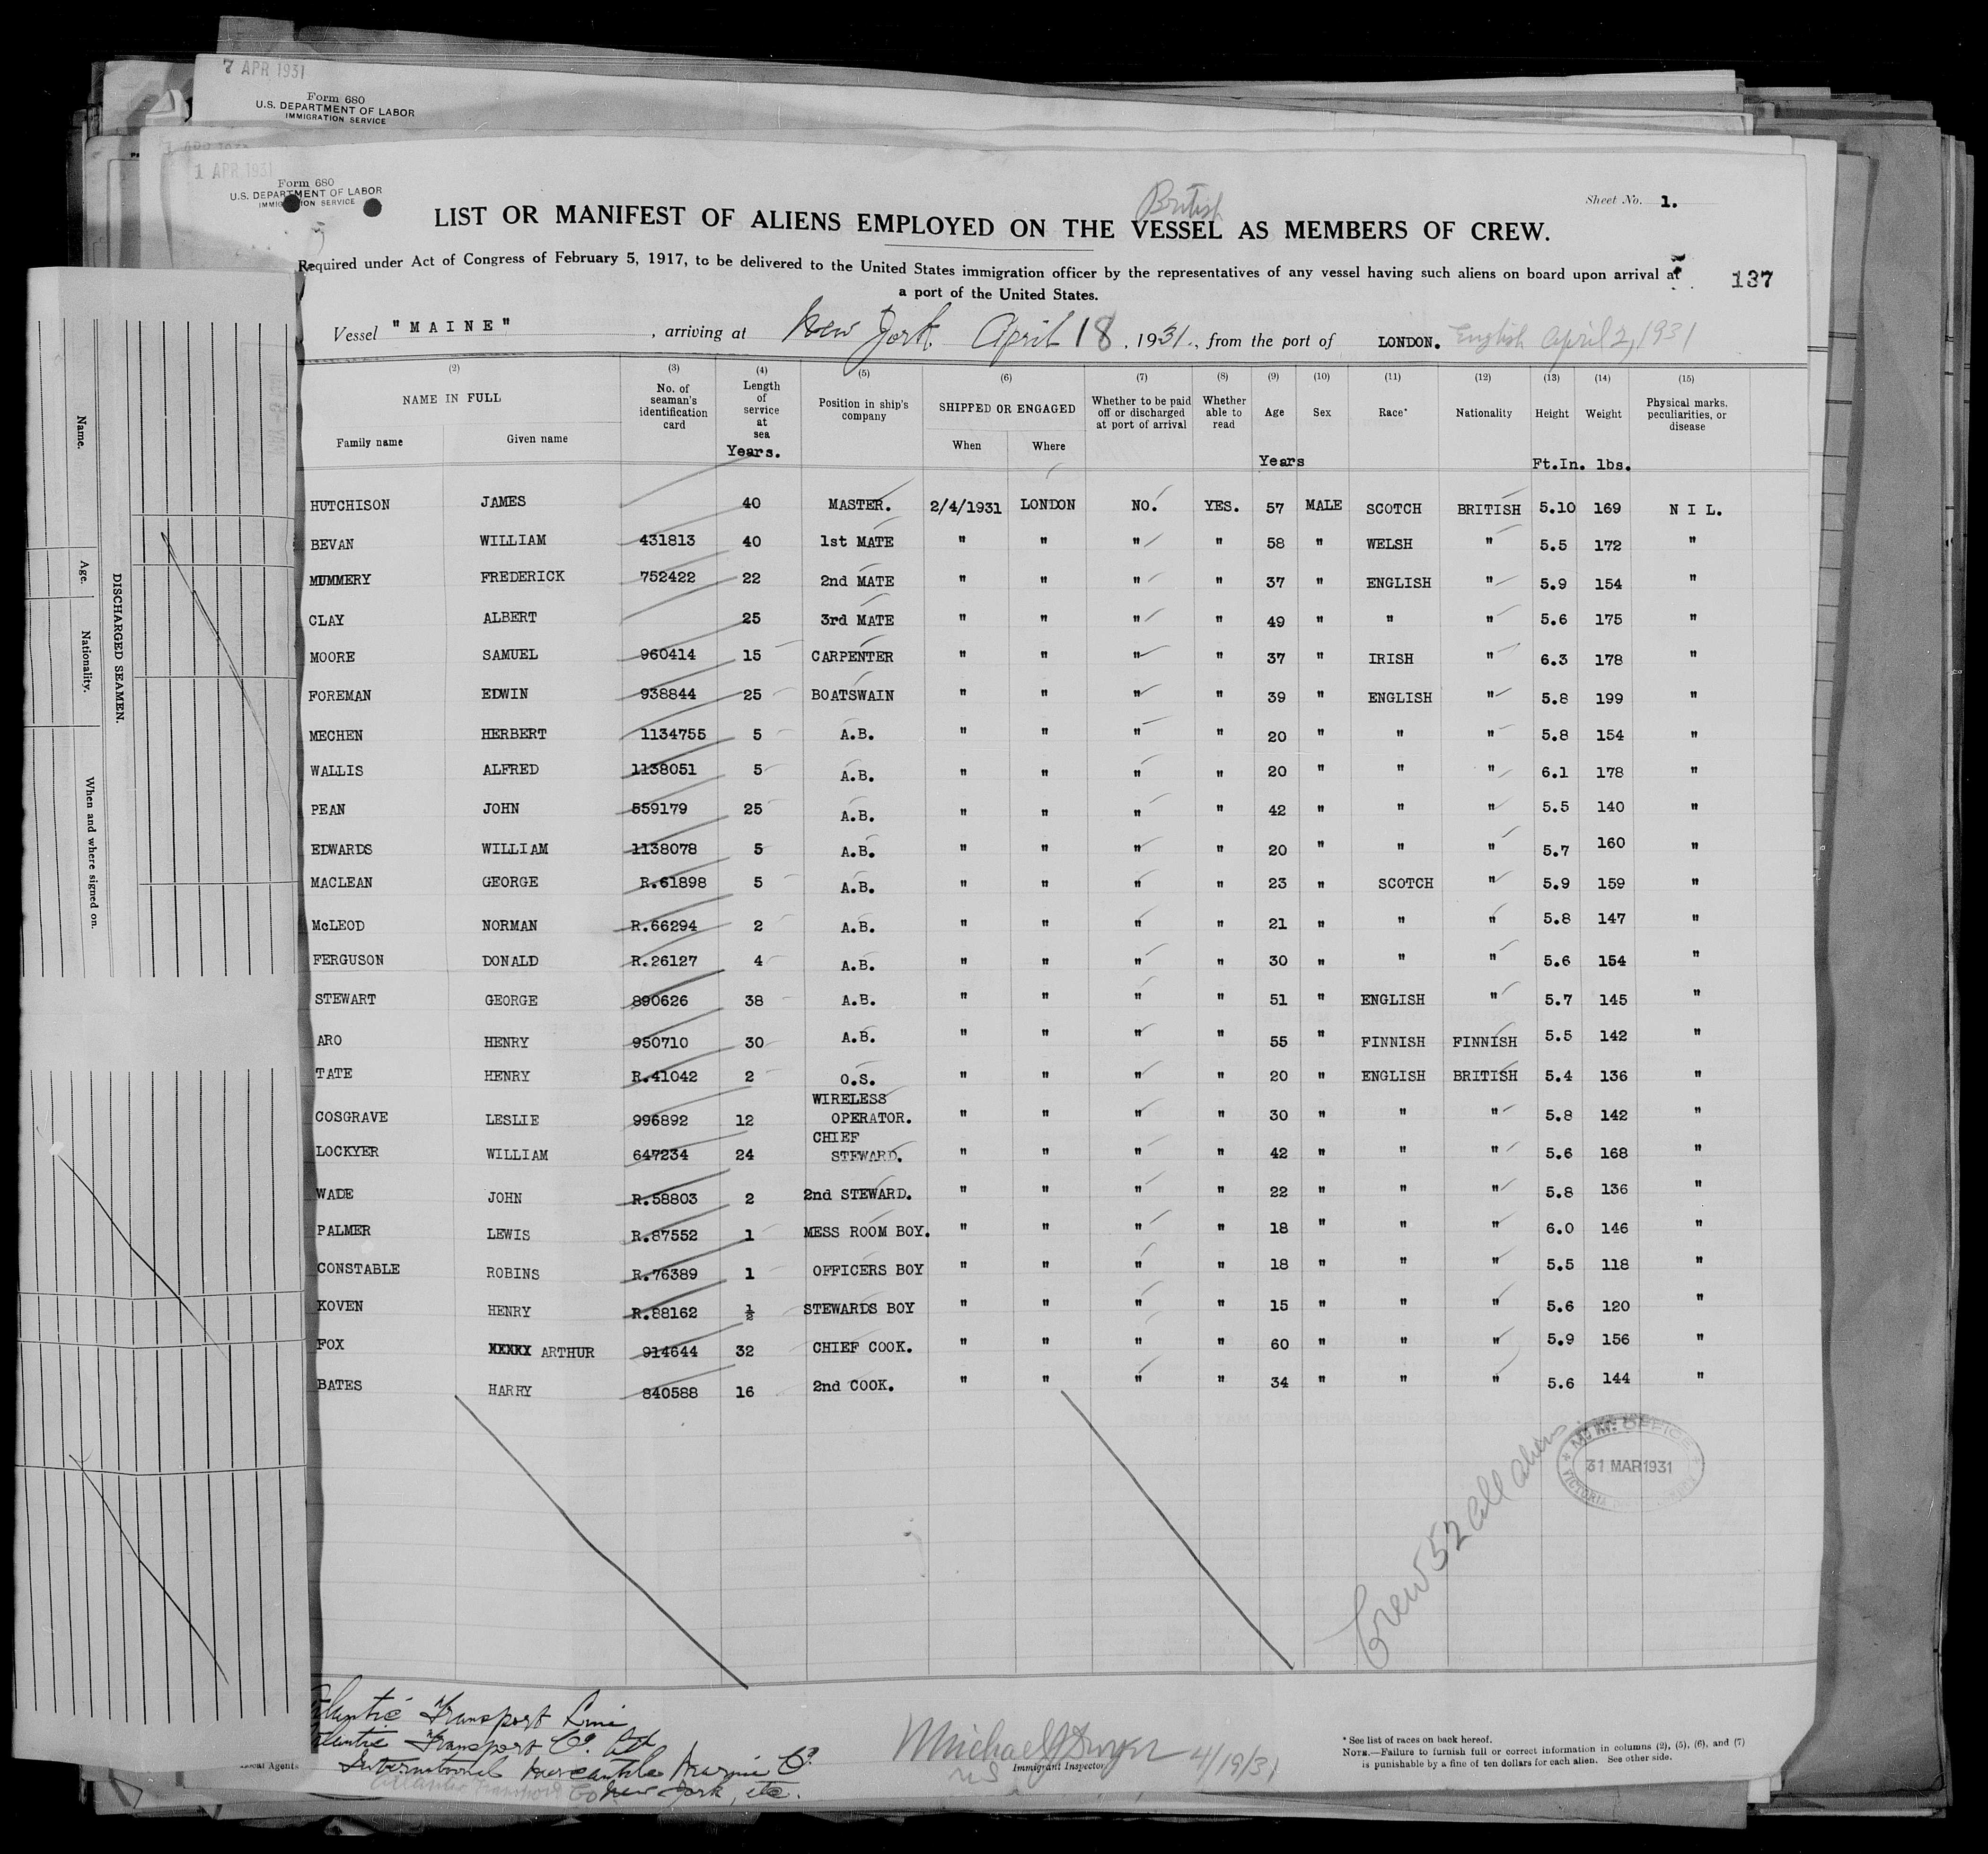 7 APR 1931
Form 680
U.S. DEPARTMENT OF LABOR
IMMIGRATION SERVICE
1 APR 1931
Form 680
U.S. DEPARTMENT OF LABOR
IMMIGRATION SERVICE
Sheet No. 1.
British
LIST OR MANIFEST OF ALIENS EMPLOYED ON THE VESSEL AS MEMBERS OF CREW.
Required under Act of Congress of February 5, 1917, to be delivered to the United States immigration officer by the representatives of any vessel having such aliens on board upon arrival at
a port of the United States.
137
Vessel "MAINE", arriving at New York. April 18, 1931., from the port of LONDON. English April 2, 1931
(2) (3) (4) (5) (6) (7) (8) (9) (10) (11) (12) (13) (14) (15)
NAME IN FULL No. of seaman's identification card Length of service at sea Position in ship's company SHIPPED OR ENGAGED Whether to be paid off or discharged at port of arrival Whether able to read Age Sex Race* Nationality Height Weight Physical marks, peculiarities, or disease
Family name Given name When Where
Years. Years Ft.In. lbs.
HUTCHISON JAMES 40 MASTER. 2/4/1931 LONDON NO. YES. 57 MALE SCOTCH BRITISH 5.10 169 N I L.
BEVAN WILLIAM 431813 40 1st MATE " " " " 58 " WELSH " 5.5 172 "
MUMMERY FREDERICK 752422 22 2nd MATE " " " " 37 " ENGLISH " 5.9 154 "
CLAY ALBERT 25 3rd MATE " " " " 49 " " " 5.6 175 "
MOORE SAMUEL 960414 15 CARPENTER " " " " 37 " IRISH " 6.3 178 "
FOREMAN EDWIN 938844 25 BOATSWAIN " " " " 39 " ENGLISH " 5.8 199 "
MECHEN HERBERT 1134755 5 A.B. " " " " 20 " " " 5.8 154 "
WALLIS ALFRED 1138051 5 A.B. " " " " 20 " " " 6.1 178 "
PEAN JOHN 559179 25 A.B. " " " " 42 " " " 5.5 140 "
EDWARDS WILLIAM 1138078 5 A.B. " " " " 20 " " " 5.7 160 "
MACLEAN GEORGE R.61898 5 A.B. " " " " 23 " SCOTCH " 5.9 159 "
McLEOD NORMAN R.66294 2 A.B. " " " " 21 " " " 5.8 147 "
FERGUSON DONALD R.26127 4 A.B. " " " " 30 " " " 5.6 154 "
STEWART GEORGE 890626 38 A.B. " " " " 51 " ENGLISH " 5.7 145 "
ARO HENRY 950710 30 A.B. " " " " 55 " FINNISH FINNISH 5.5 142 "
TATE HENRY R.41042 2 O.S. " " " " 20 " ENGLISH BRITISH 5.4 136 "
COSGRAVE LESLIE 996892 12 WIRELESS OPERATOR. " " " " 30 " " " 5.8 142 "
LOCKYER WILLIAM 647234 24 CHIEF STEWARD. " " " " 42 " " " 5.6 168 "
WADE JOHN R.58803 2 2nd STEWARD. " " " " 22 " " " 5.8 136 "
PALMER LEWIS R.87552 1 MESS ROOM BOY. " " " " 18 " " " 6.0 146 "
CONSTABLE ROBINS R.76389 1 OFFICERS BOY " " " " 18 " " " 5.5 118 "
KOVEN HENRY R.88162 ½ STEWARDS BOY " " " " 15 " " " 5.6 120 "
FOX ARTHUR 914644 32 CHIEF COOK. " " " " 60 " " " 5.9 156 "
BATES HARRY 840588 16 2nd COOK. " " " " 34 " " " 5.6 144 "
M.M. OFFICE
31 MAR 1931
VICTORIA
Crew 52 all aliens
Atlantic Transport Line
Atlantic Transport Co. Ltd
International Mercantile Marine Co.
New York, etc.
Local Agents
Michael J Dwyer 4/19/31
Immigrant Inspector
* See list of races on back hereof.
NOTE.—Failure to furnish full or correct information in columns (2), (5), (6), and (7)
is punishable by a fine of ten dollars for each alien. See other side.
DISCHARGED SEAMEN.
Name.
Age.
Nationality.
When and where signed on.